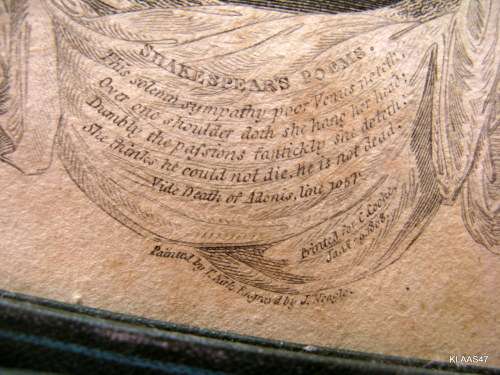 SHAKESPEAR'S POEMS.
This solemn sympathy poor Venus noteth,
Over one shoulder doth she hang her head,
Dumbly she passions frantickly she doteth:
She thinks he could not die, he is not dead.
Vide Death of Adonis, line 1057.
Printed for C. Cooke
1808.
Painted by Engraved by J. Neagle.
KLAAS47